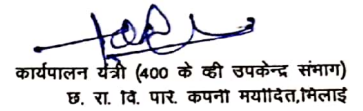 कार्यपालन यंत्री (400 के व्ही उपकेन्द्र संभाग)
छ. रा. वि. पारे. कपनी मर्यादित,भिलाई